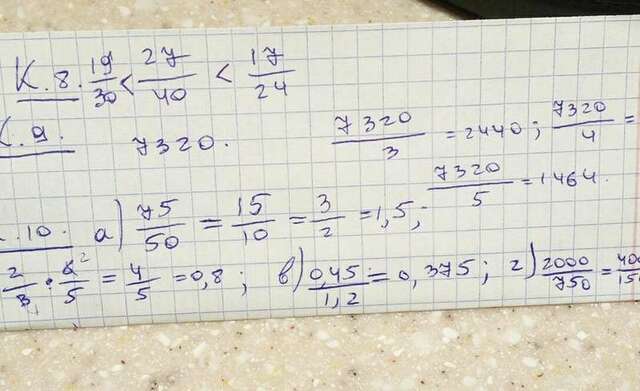 К.8. 19/30 < 27/40 < 17/24
К.9. 7320. 7320/3 = 2440; 7320/4 =
7320/5 = 1464.
К.10. а) 75/50 = 15/10 = 3/2 = 1,5;
2/3 · 6²/5 = 4/5 = 0,8; в) 0,45/1,2 = 0,375; г) 2000/750 = 400/150